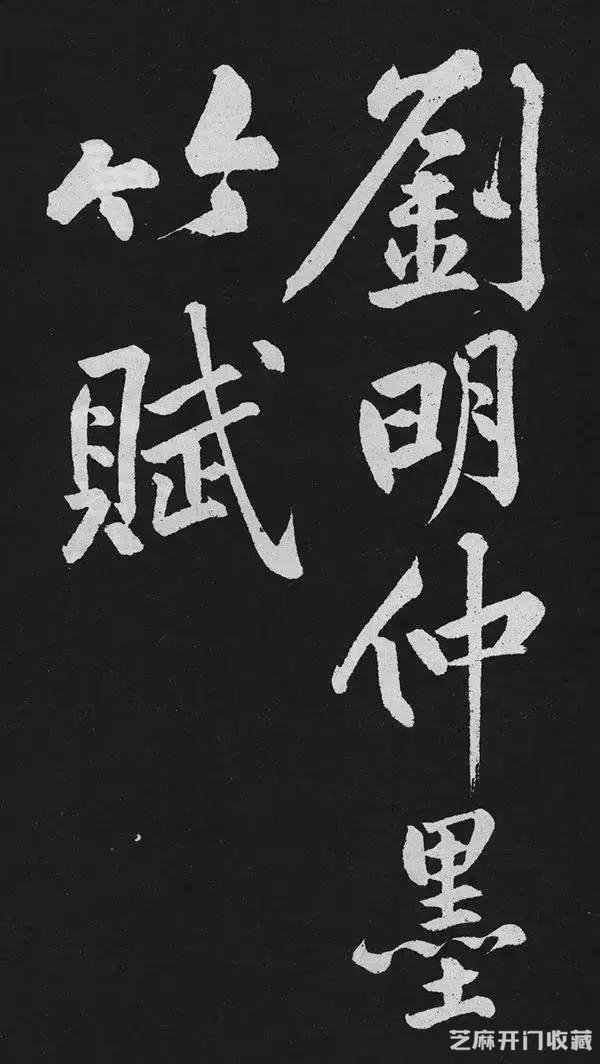 劉明仲墨
竹賦
芝麻开门收藏